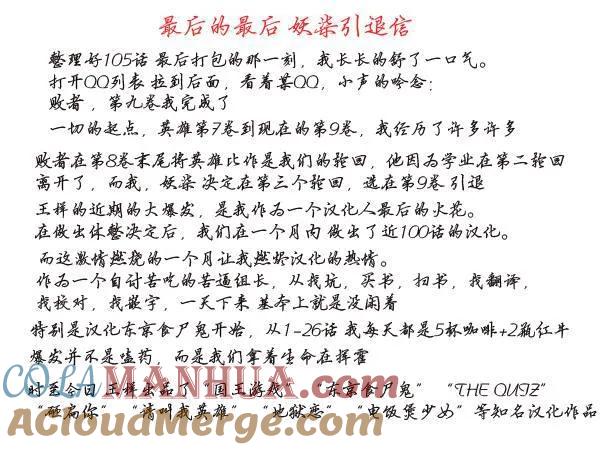 最后的最后 妖柒引退信
整理好105话 最后打包的那一刻，我长长的舒了一口气。
打开QQ列表 拉到后面，看着某QQ，小声的吟念：
败者，第九卷我完成了
一切的起点，英雄第7卷到现在的第9卷，我经历了许多许多
败者在第8卷末尾将英雄比作是我们的轮回，他因为学业在第二轮回
离开了，而我，妖柒 决定在第三个轮回，选在第9卷 引退
王样的近期的大爆发，是我作为一个汉化人最后的火花。
在做出休整决定后，我们在一个月内 做出了近100话的汉化。
而这激情燃烧的一个月让我燃烬汉化的热情。
作为一个自讨苦吃的苦逼组长，从找坑，买书，扫书，找翻译，
找校对，找嵌字，一天下来 基本上就是没闲着
特别是汉化东京食尸鬼开始，从1-26话 我每天都是5杯咖啡+2瓶红牛
爆发并不是嗑药，而是我们拿着生命在挥霍
时至今日 王样出品了“国王游戏” “东京食尸鬼” “THE QUIZ”
“砸扁你” “请叫我英雄” “地狱恋” “电饭煲少女”等知名汉化作品
COLAMANHUA.COM
AcloudMerge.com